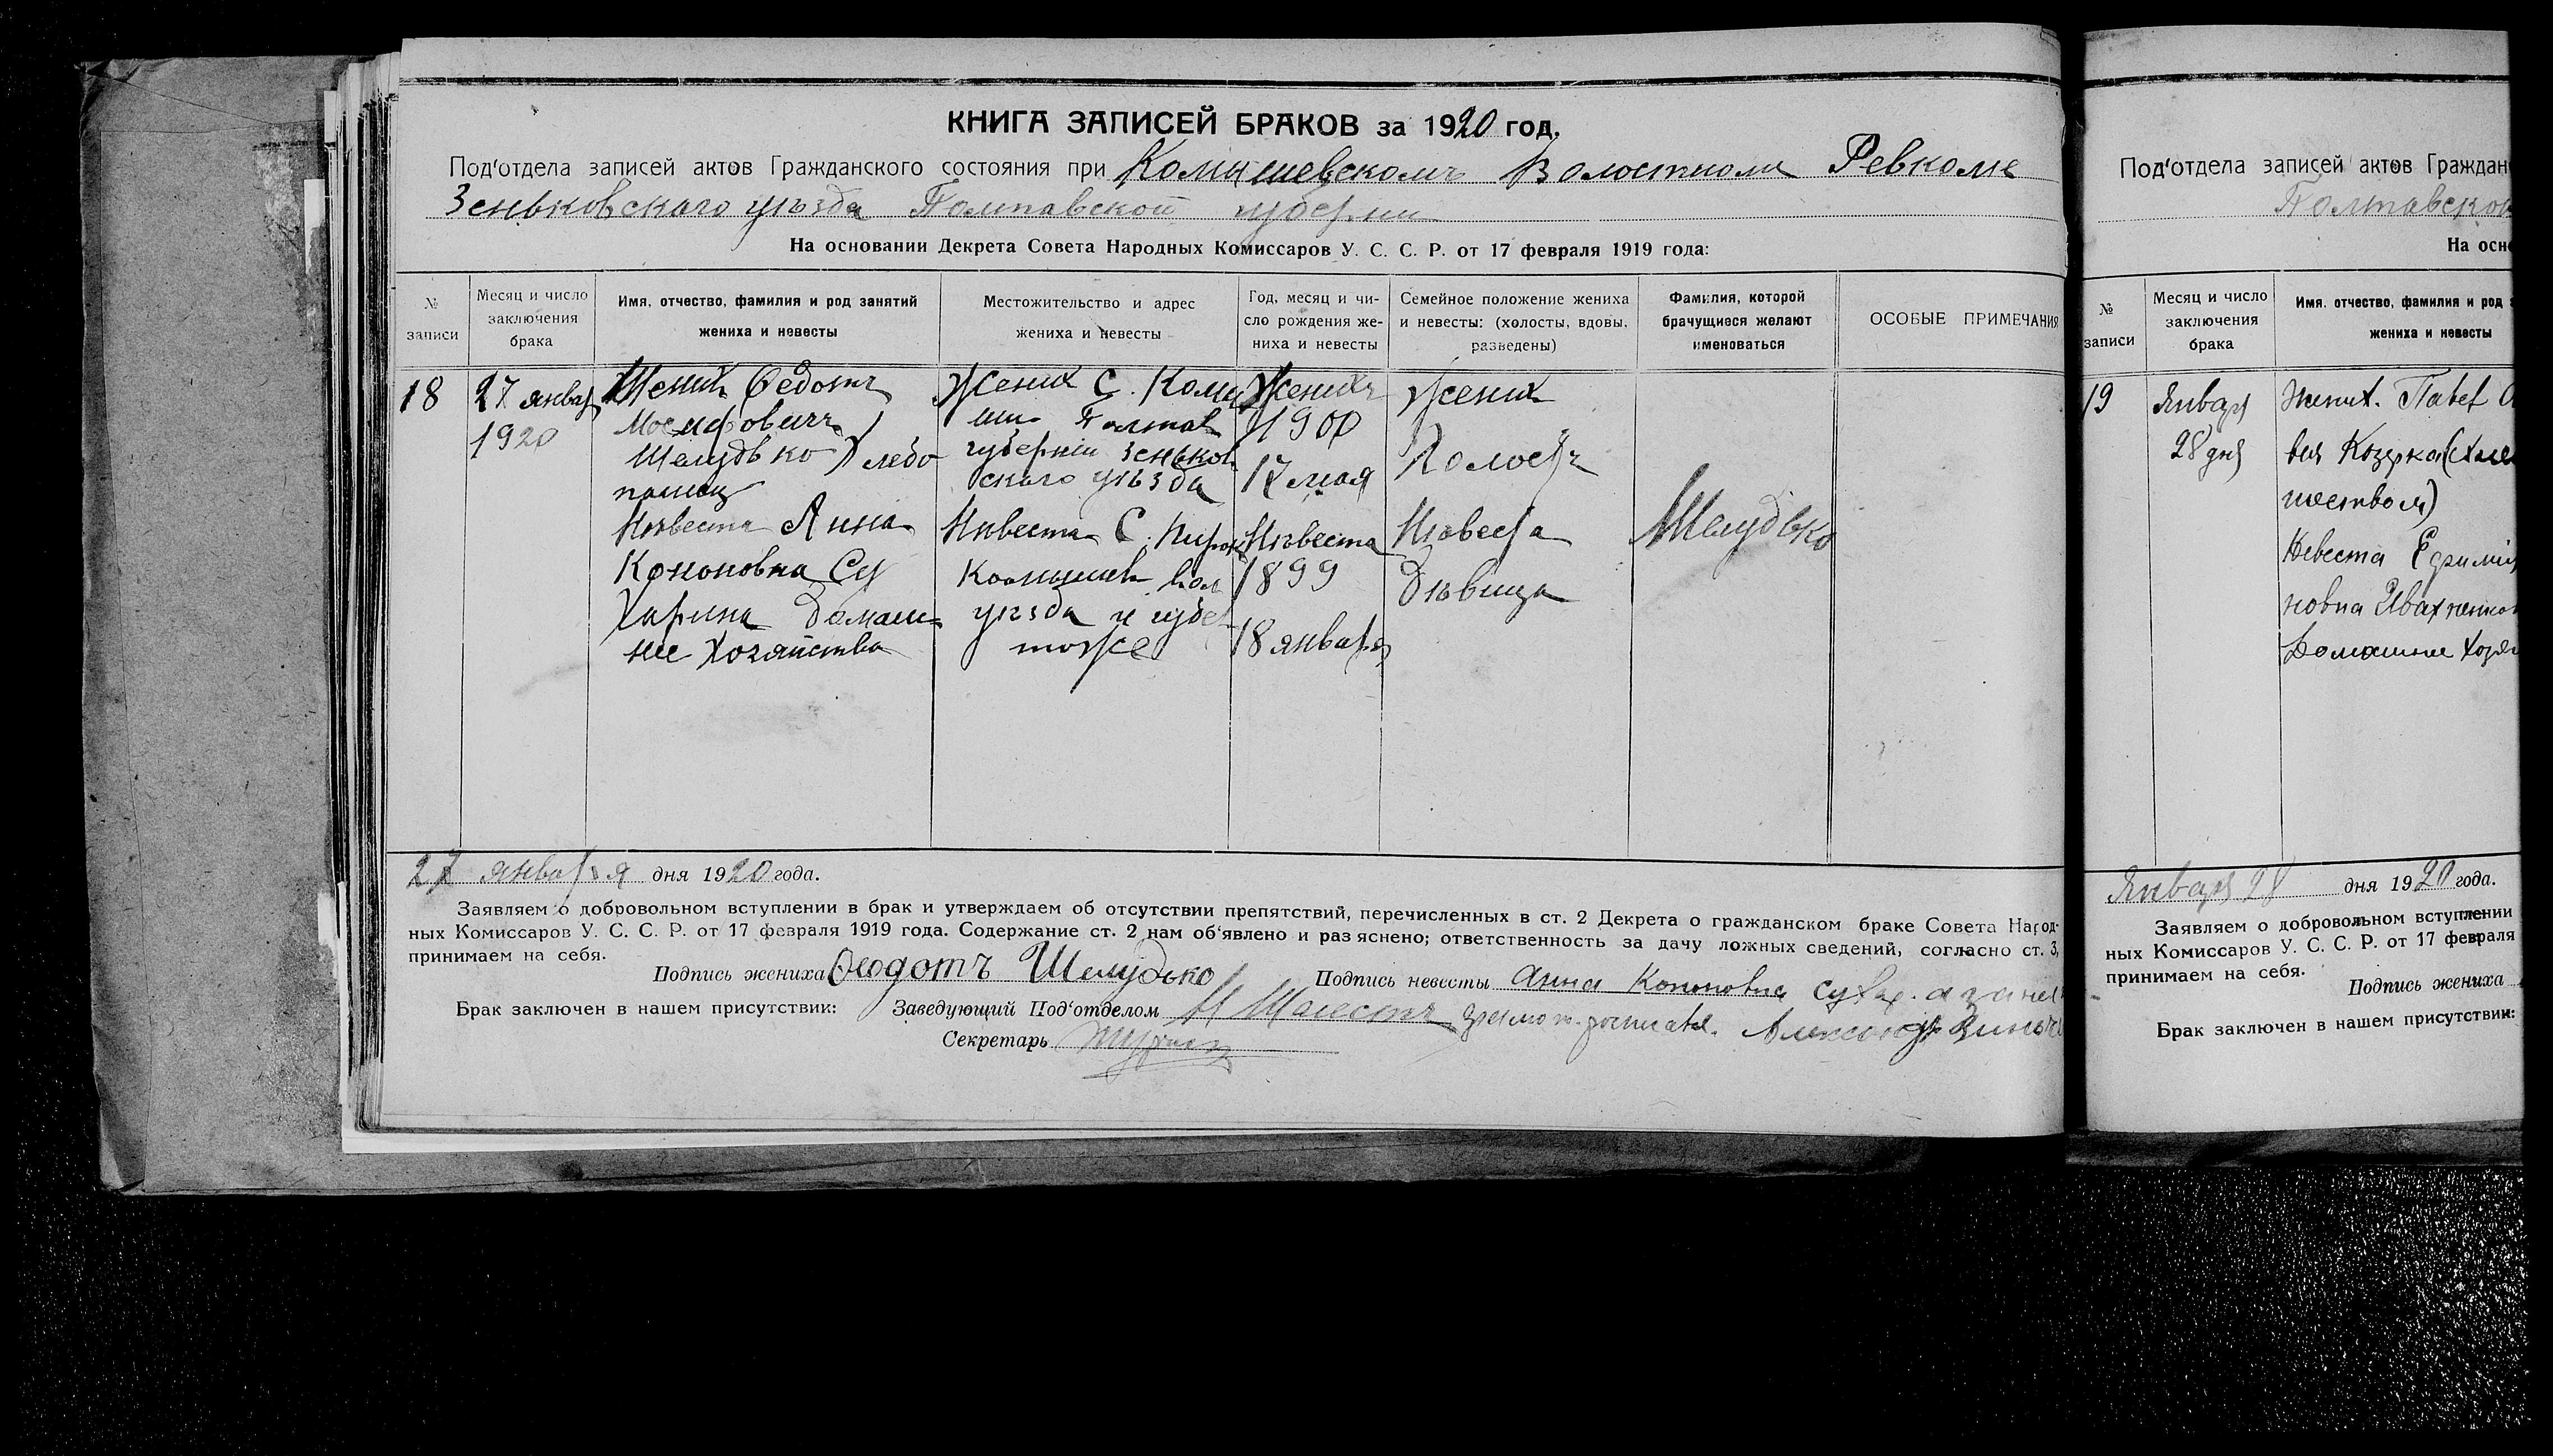 КНИГА ЗАПИСЕЙ БРАКОВ за 1920 год.
Под'отдела записей актов Гражданского состояния при Комышевскомъ Волостном Ревкоме
Зеньковского уѣзда Полтавской губерни
На основании Декрета Совета Народных Комиссаров У. С. С. Р. от 17 февраля 1919 года:
№ записи
Месяц и число заключения брака
Имя, отчество, фамилия и род занятий жениха и невесты
Местожительство и адрес жениха и невесты
Год, месяц и число рождения жениха и невесты
Семейное положение жениха и невесты: (холосты, вдовы, разведены)
Фамилия, которой брачущиеся желают именоваться
ОСОБЫЕ ПРИМЕЧАНИЯ
18
27 январ
1920
Жених Федотъ
Шелудько Хлебо
пашец
Невеста Анна
Кононовна Су
Харина Домаш-
нее Хозяйство
Жених С. Комы
ши Полтав
губернии Зеньков
ского уѣзда
Нѣвеста С.
Комышев вол
уѣзда и губер
тоже
Женихъ
1900
17 мая
Нѣвеста
1899
18 января
Жених
Холостъ
Нѣвеста
Дѣвица
Шелудько
27 января дня 1920 года.
Заявляем о добровольном вступлении в брак и утверждаем об отсутствии препятствий, перечисленных в ст. 2 Декрета о гражданском браке Совета Народ-
ных Комиссаров У. С. С. Р. от 17 февраля 1919 года. Содержание ст. 2 нам об'явлено и раз'яснено; ответственность за дачу ложных сведений, согласно ст. 3,
принимаем на себя.
Подпись жениха Феодотъ Шелудько Подпись невесты Анна Кононовна Сухар. а за не
Брак заключен в нашем присутствии: Заведующий Под'отделом
Секретарь
Под'отдела записей актов Граждан
Полтавской
На осн
№ записи
Месяц и число заключения брака
Имя, отчество, фамилия и род
жениха и невесты
19
Январ
28 дня
Жених. Павел
Невеста
Домашнее Хозя
Января 28 дня 1920 года.
Заявляем о добровольном вступлении
ных Комиссаров У. С. С. Р. от 17 февраля
принимаем на себя.
Подпись жениха
Брак заключен в нашем присутствии: